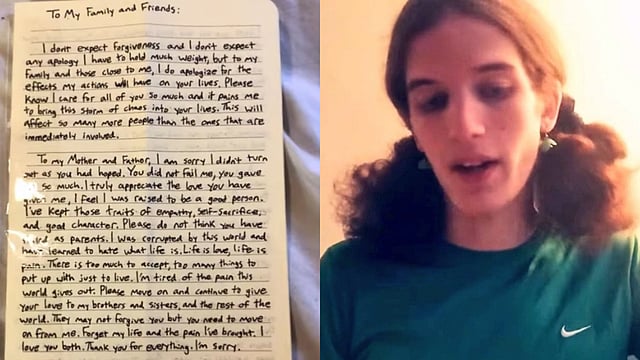 To My Family and Friends:
I dont expect forgiveness and I don't expect
any apology I have to hold much weight, but to my
Family and those close to me, I do apologize for the
effects my actions will have on your lives. Please
Know I care for all of you so much and it pains me
to bring this storm of chaos into your lives. This will
affect so many more people than the ones that are
immediately involved.
To my Mother and Father, I am sorry I didn't turn
out as you had hoped. You did not fail me, you gave
so much. I truly appreciate the love you have
given me, I feel I was raised to be a good person.
I've kept those traits of empathy, self-sacrifice,
and good character. Please do not think you have
as parents. I was corrupted by this world and
have learned to hate what life is. Life is love, life is
pain. There is too much to accept, too many things to
put up with just to live. I'm tired of the pain this
world gives out. Please move on and continue to give
your love to my brothers and sisters, and the rest of the
world. They may not forgive you but you need to move
on from me. Forget my life and the pain I've brought. I
love you both. Thank you for everything. I'm sorry.